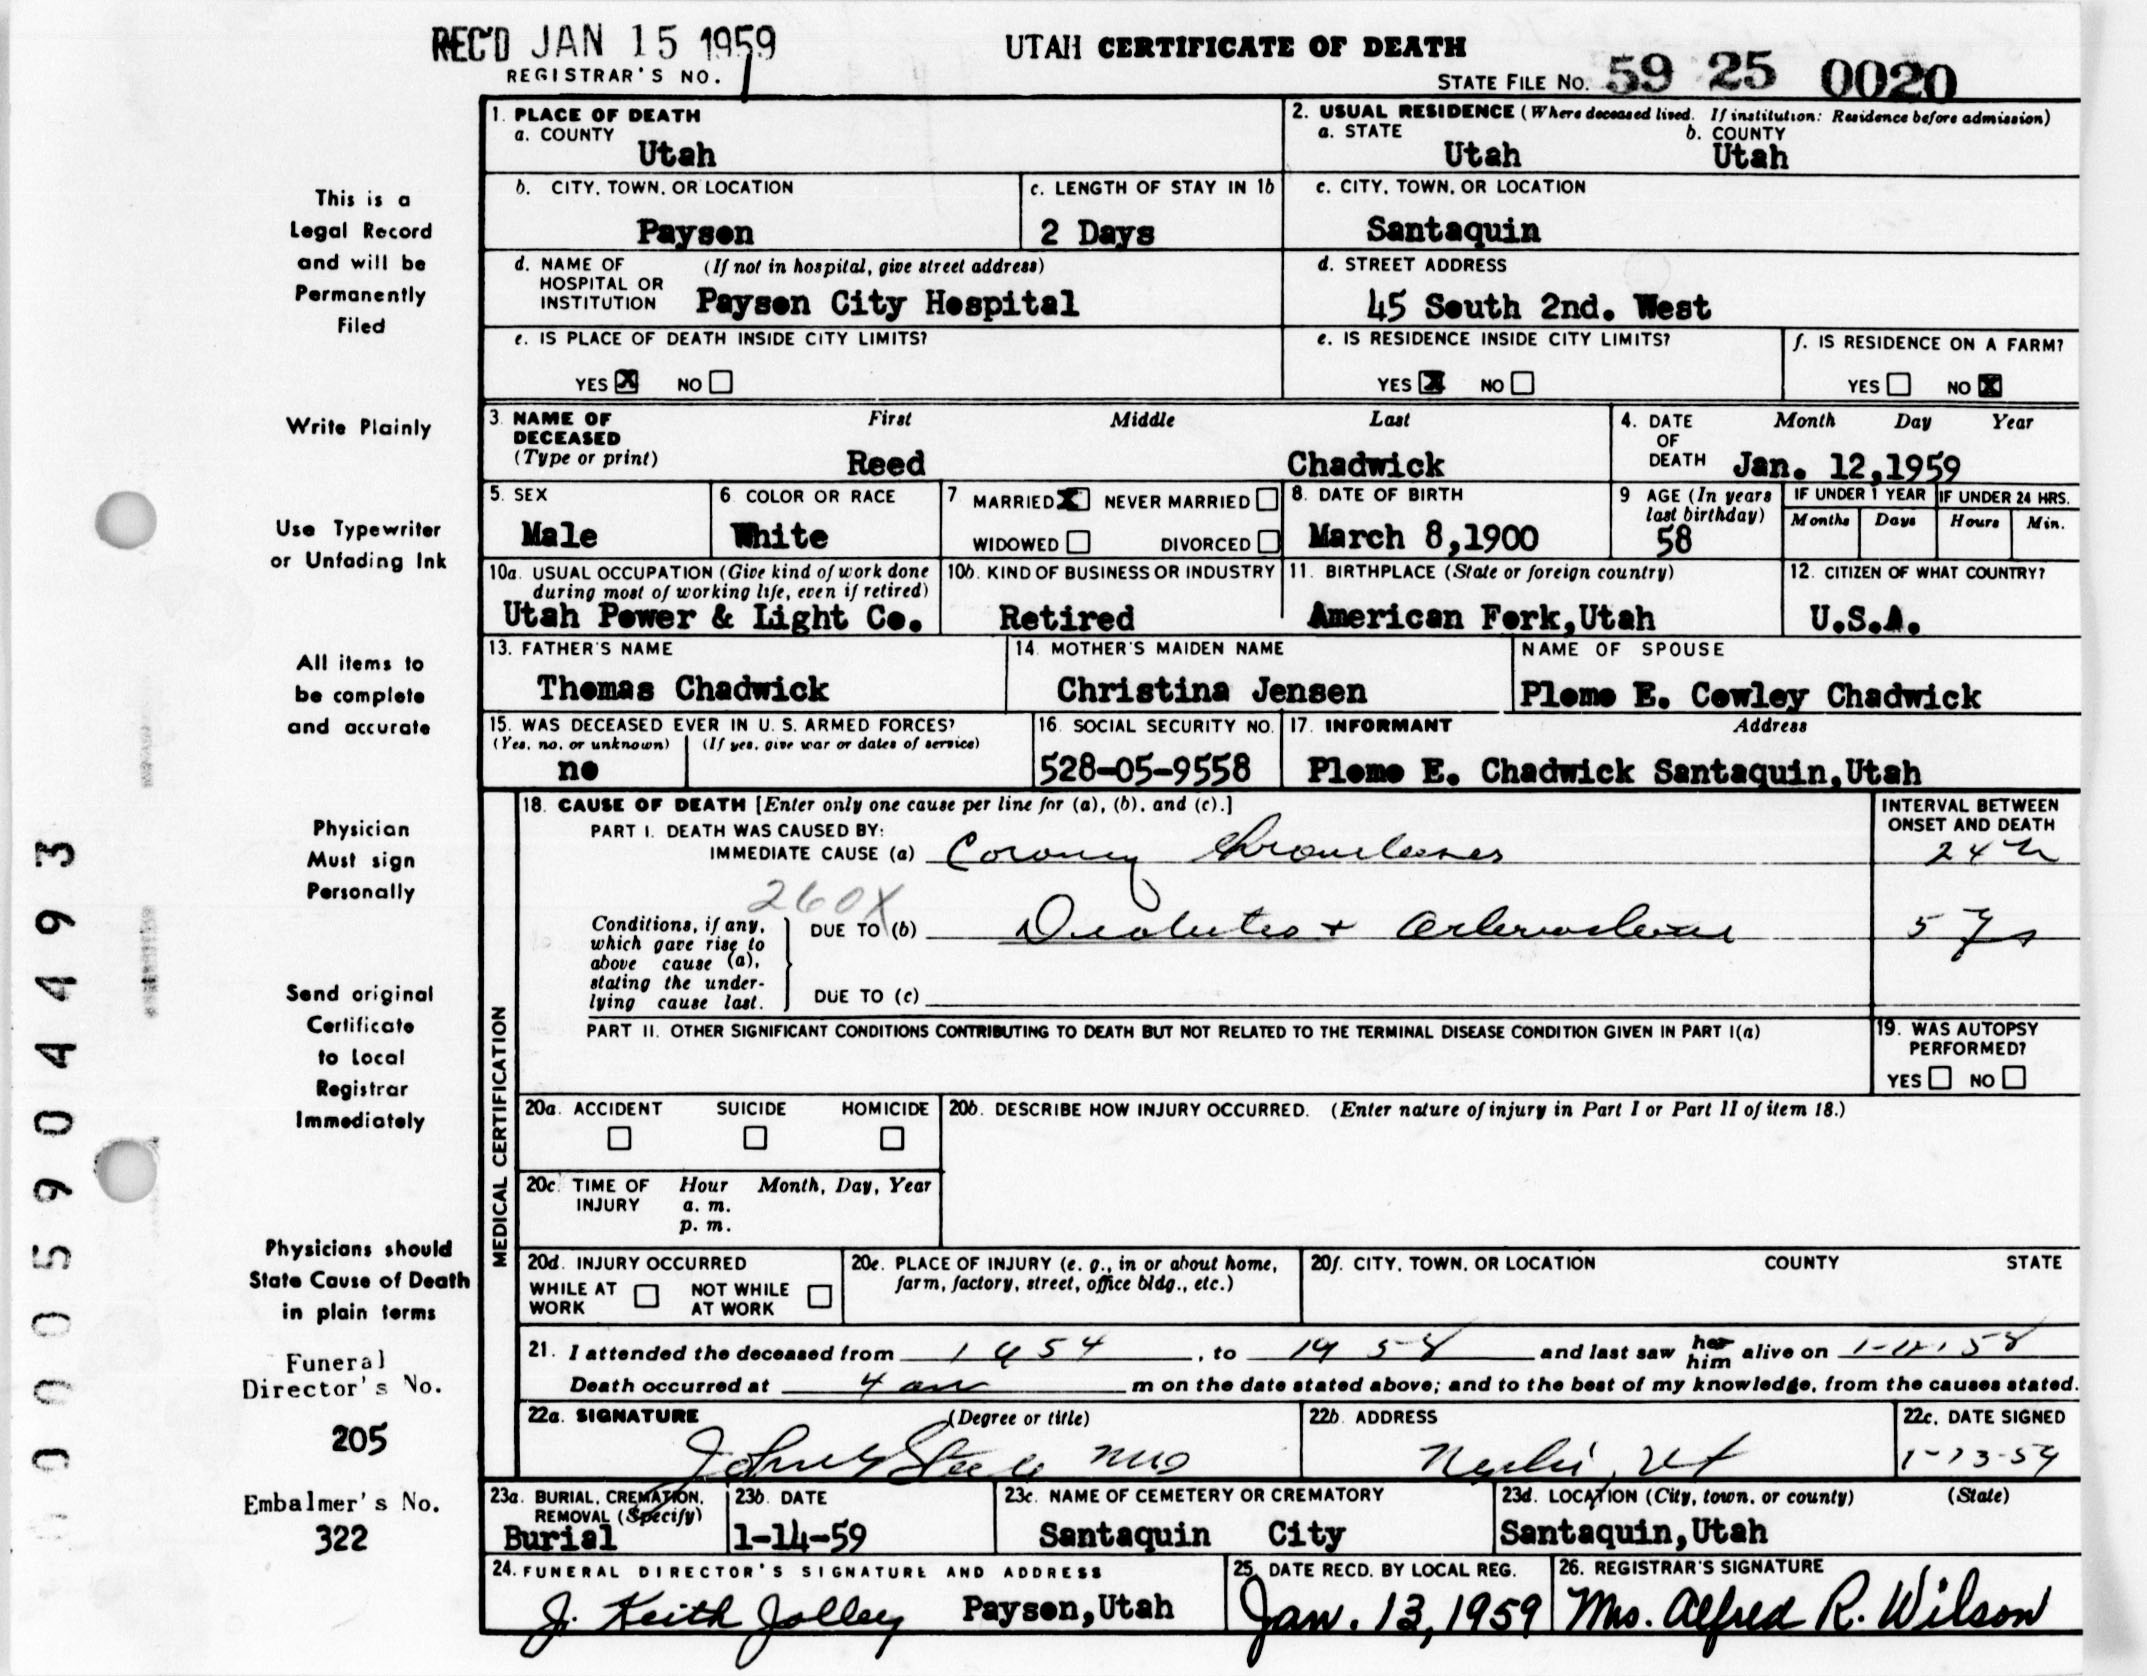 REC'D JAN 15 1959
REGISTRAR'S NO. 1
UTAH CERTIFICATE OF DEATH
STATE FILE NO. 59 25 0020
This is a
Legal Record
and will be
Permanently
Filed
Write Plainly
Use Typewriter
or Unfading Ink
All items to
be complete
and accurate
Physician
Must sign
Personally
Send original
Certificate
to Local
Registrar
Immediately
Physicians should
State Cause of Death
in plain terms
Funeral
Director's No.
205
Embalmer's No.
322
1. PLACE OF DEATH
a. COUNTY
Utah
2. USUAL RESIDENCE (Where deceased lived. If institution: Residence before admission)
a. STATE b. COUNTY
Utah Utah
b. CITY, TOWN, OR LOCATION c. LENGTH OF STAY IN 1b
Payson 2 Days
c. CITY, TOWN, OR LOCATION
Santaquin
d. NAME OF HOSPITAL OR INSTITUTION (If not in hospital, give street address)
Payson City Hospital
d. STREET ADDRESS
45 South 2nd. West
e. IS PLACE OF DEATH INSIDE CITY LIMITS?
YES X NO
e. IS RESIDENCE INSIDE CITY LIMITS?
YES X NO
f. IS RESIDENCE ON A FARM?
YES NO X
3. NAME OF DECEASED (Type or print) First Middle Last
Reed Chadwick
4. DATE OF DEATH Month Day Year
Jan. 12,1959
5. SEX
Male
6. COLOR OR RACE
White
7. MARRIED X NEVER MARRIED
WIDOWED DIVORCED
8. DATE OF BIRTH
March 8,1900
9. AGE (In years last birthday)
58
IF UNDER 1 YEAR IF UNDER 24 HRS.
Months Days Hours Min.
10a. USUAL OCCUPATION (Give kind of work done
during most of working life, even if retired)
Utah Power & Light Co.
10b. KIND OF BUSINESS OR INDUSTRY
Retired
11. BIRTHPLACE (State or foreign country)
American Fork,Utah
12. CITIZEN OF WHAT COUNTRY?
U.S.A.
13. FATHER'S NAME
Thomas Chadwick
14. MOTHER'S MAIDEN NAME
Christina Jensen
NAME OF SPOUSE
Plomo E. Cowley Chadwick
15. WAS DECEASED EVER IN U. S. ARMED FORCES?
(Yes, no, or unknown) (If yes, give war or dates of service)
no
16. SOCIAL SECURITY NO.
528-05-9558
17. INFORMANT Address
Plomo E. Chadwick Santaquin,Utah
MEDICAL CERTIFICATION
18. CAUSE OF DEATH [Enter only one cause per line for (a), (b), and (c).]
INTERVAL BETWEEN
ONSET AND DEATH
PART I. DEATH WAS CAUSED BY:
IMMEDIATE CAUSE (a) Coronary 24
260X
Conditions, if any,
which gave rise to
above cause (a),
stating the under-
lying cause last.
DUE TO (b) Diabetes + 5 yrs
DUE TO (c)
PART II. OTHER SIGNIFICANT CONDITIONS CONTRIBUTING TO DEATH BUT NOT RELATED TO THE TERMINAL DISEASE CONDITION GIVEN IN PART I(a)
19. WAS AUTOPSY
PERFORMED?
YES NO
20a. ACCIDENT SUICIDE HOMICIDE
20b. DESCRIBE HOW INJURY OCCURRED. (Enter nature of injury in Part I or Part II of item 18.)
20c. TIME OF INJURY Hour Month, Day, Year
a. m.
p. m.
20d. INJURY OCCURRED
WHILE AT WORK NOT WHILE AT WORK
20e. PLACE OF INJURY (e. g., in or about home,
farm, factory, street, office bldg., etc.)
20f. CITY, TOWN, OR LOCATION COUNTY STATE
21. I attended the deceased from 1954, to 1958 and last saw her him alive on
Death occurred at 4 am m on the date stated above; and to the best of my knowledge, from the causes stated.
22a. SIGNATURE (Degree or title)
John Steele MD
22b. ADDRESS
Nephi, Ut
22c. DATE SIGNED
1-13-59
23a. BURIAL, CREMATION,
REMOVAL (Specify)
Burial
23b. DATE
1-14-59
23c. NAME OF CEMETERY OR CREMATORY
Santaquin City
23d. LOCATION (City, town, or county) (State)
Santaquin,Utah
24. FUNERAL DIRECTOR'S SIGNATURE AND ADDRESS
J. Keith Jolley Payson,Utah
25. DATE RECD. BY LOCAL REG.
Jan. 13, 1959
26. REGISTRAR'S SIGNATURE
Mrs. Alfred R. Wilson
00005904493